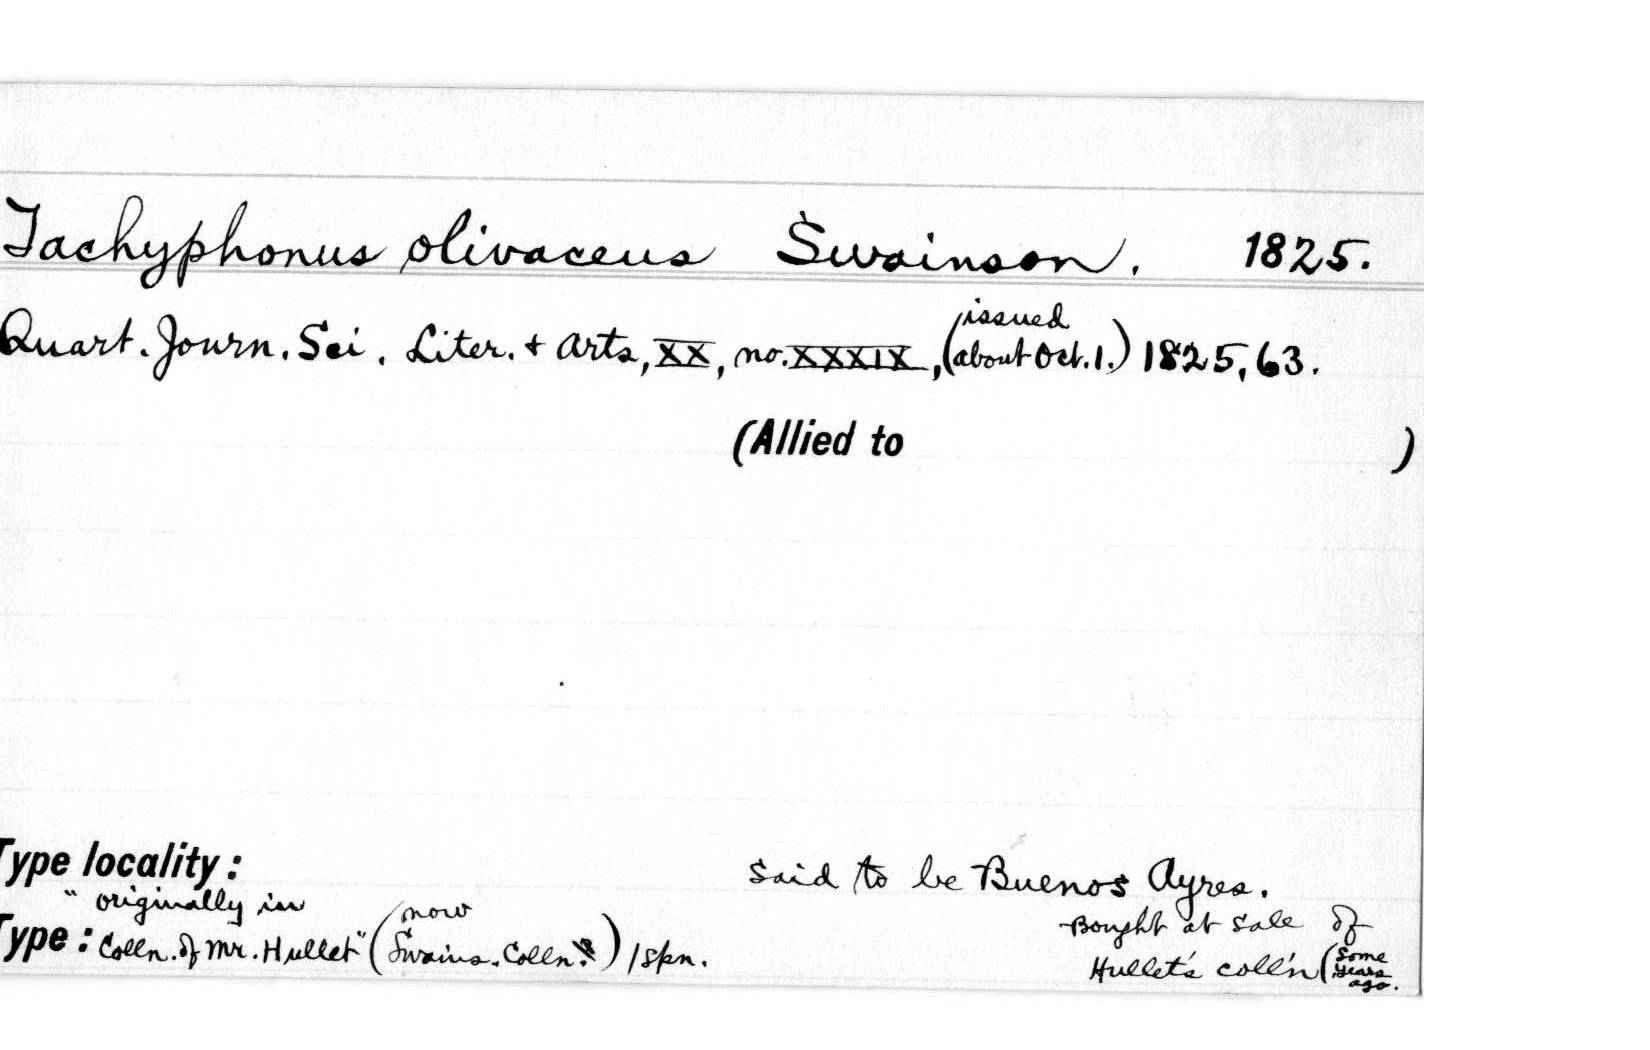 Tachyphonus olivaceus Swainson. 1825.
Quart. Journ. Sci. Liter. & Arts, XX, no. XXXIX, (issued about Oct. 1.) 1825, 63.
(Allied to )
Type locality: Said to be Buenos Ayres.
Type: "originally in Colln. of Mr. Hullet" (now Swains. Colln.?) 1 spn.
Bought at sale of
Hullet's coll'n (some years ago.